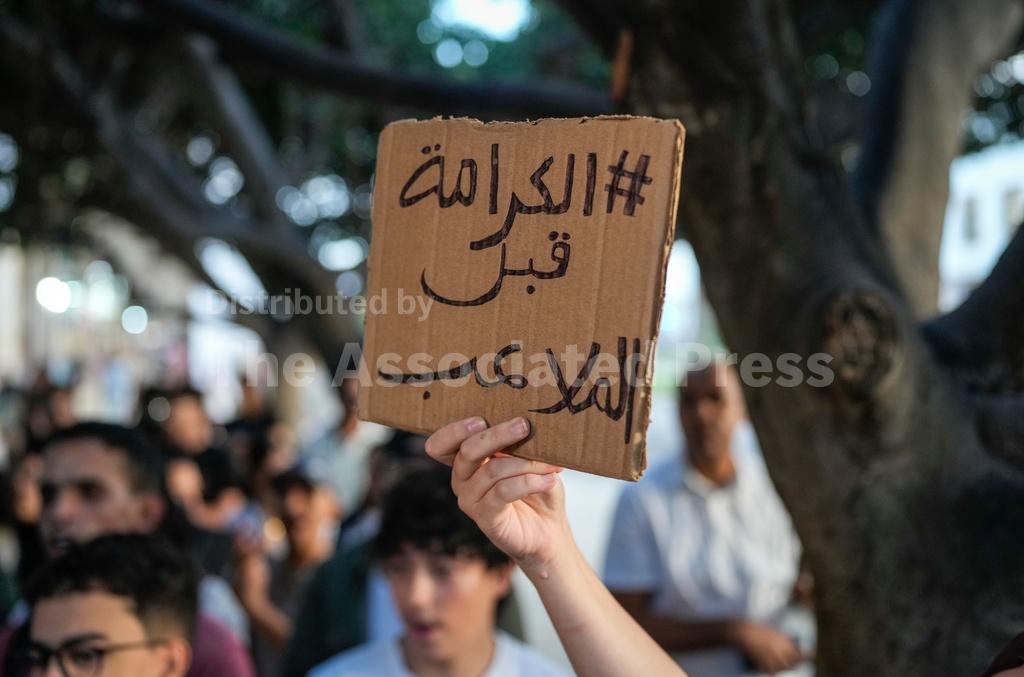 #الكرامة
قبل
الملاعب
Distributed by
The Associated Press